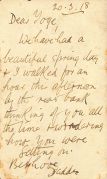 20.3.18
Dear Yoge,
We have had a
beautiful spring day
& I walked for an
hour this afternoon
by the river bank
thinking of you all
the time & wondering
how you were
getting on.
Best love
Daddy